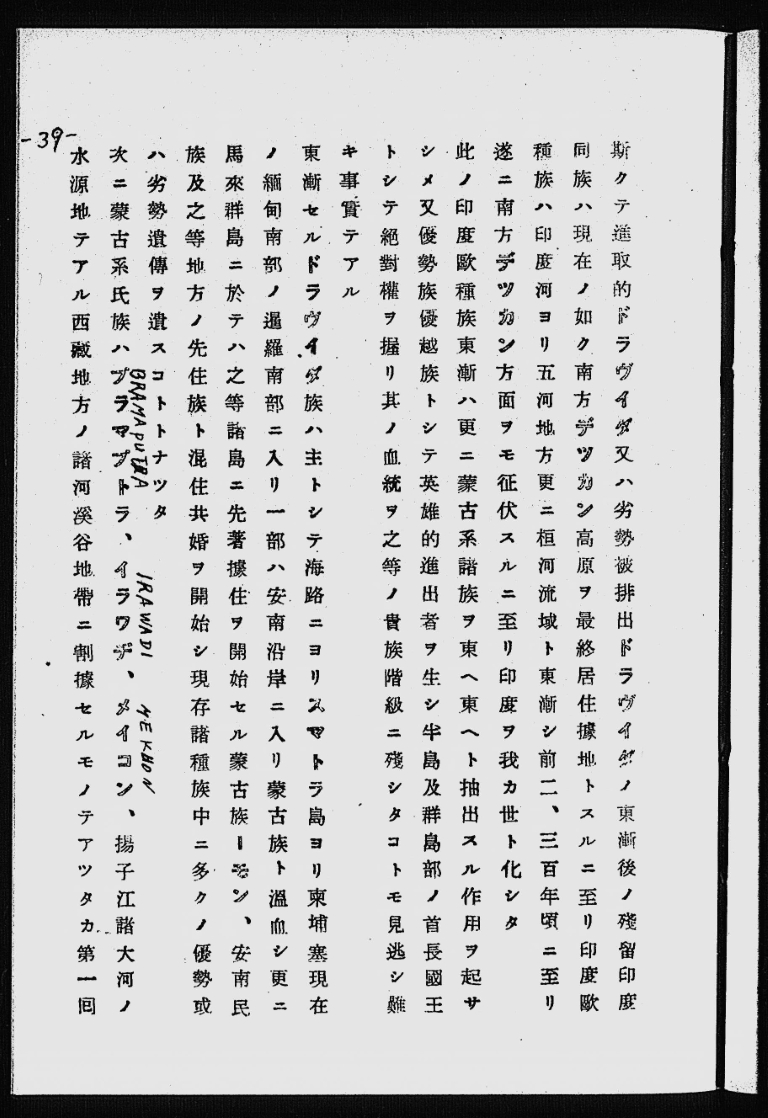 -39-
斯クテ進取的ドラヴイダ又ハ劣勢被排出ドラヴイダノ東漸後ノ殘留印度
同族ハ現在ノ如ク南方デツカン高原ヲ最終居住據地トスルニ至リ印度歐
種族ハ印度河ヨリ五河地方更ニ恒河流域ト東漸シ前二、三百年頃ニ至リ
遂ニ南方デツカン方面ヲモ征伏スルニ至リ印度ヲ我カ世ト化シタ
此ノ印度歐種族東漸ハ更ニ蒙古系諸族ヲ東へ東へト抽出スル作用ヲ起サ
シメ又優勢族優越族トシテ英雄的進出者ヲ生シ半島及群島部ノ首長國王
トシテ絕對權ヲ握リ其ノ血統ヲ之等ノ貴族階級ニ殘シタコトモ見逃シ難
キ事實テアル
東漸セルドラヴイダ族ハ主トシテ海路ニヨリスマトラ島ヨリ柬埔寨現在
ノ緬甸南部ノ暹羅南部ニ入リ一部ハ安南沿岸ニ入リ蒙古族ト溫血シ更ニ
馬來群島ニ於テハ之等諸島ニ先著據住ヲ開始セル蒙古族ーモン、安南民
族及之等地方ノ先住族ト混住共婚ヲ開始シ現存諸種族中ニ多クノ優勢或
ハ劣勢遺傳ヲ遺スコトトナツタ
BRAMAPUTRA IRAWADI MEKHON
次ニ蒙古系氏族ハブラマプトラ、イラワデ、メイコン、揚子江諸大河ノ
水源地テアル西藏地方ノ諸河溪谷地帶ニ割據セルモノテアツタカ第一囘